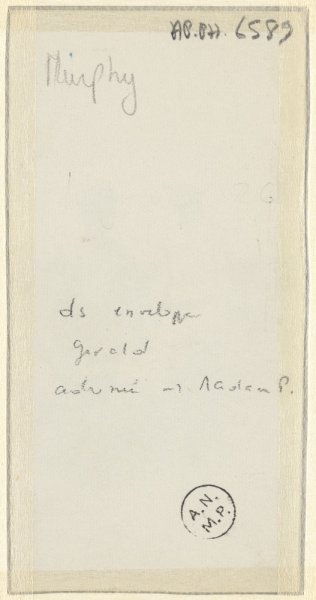 AP.PH. 6589
Murphy
ds enveloppe
Gerald
Madame P.
A.N.
M.P.